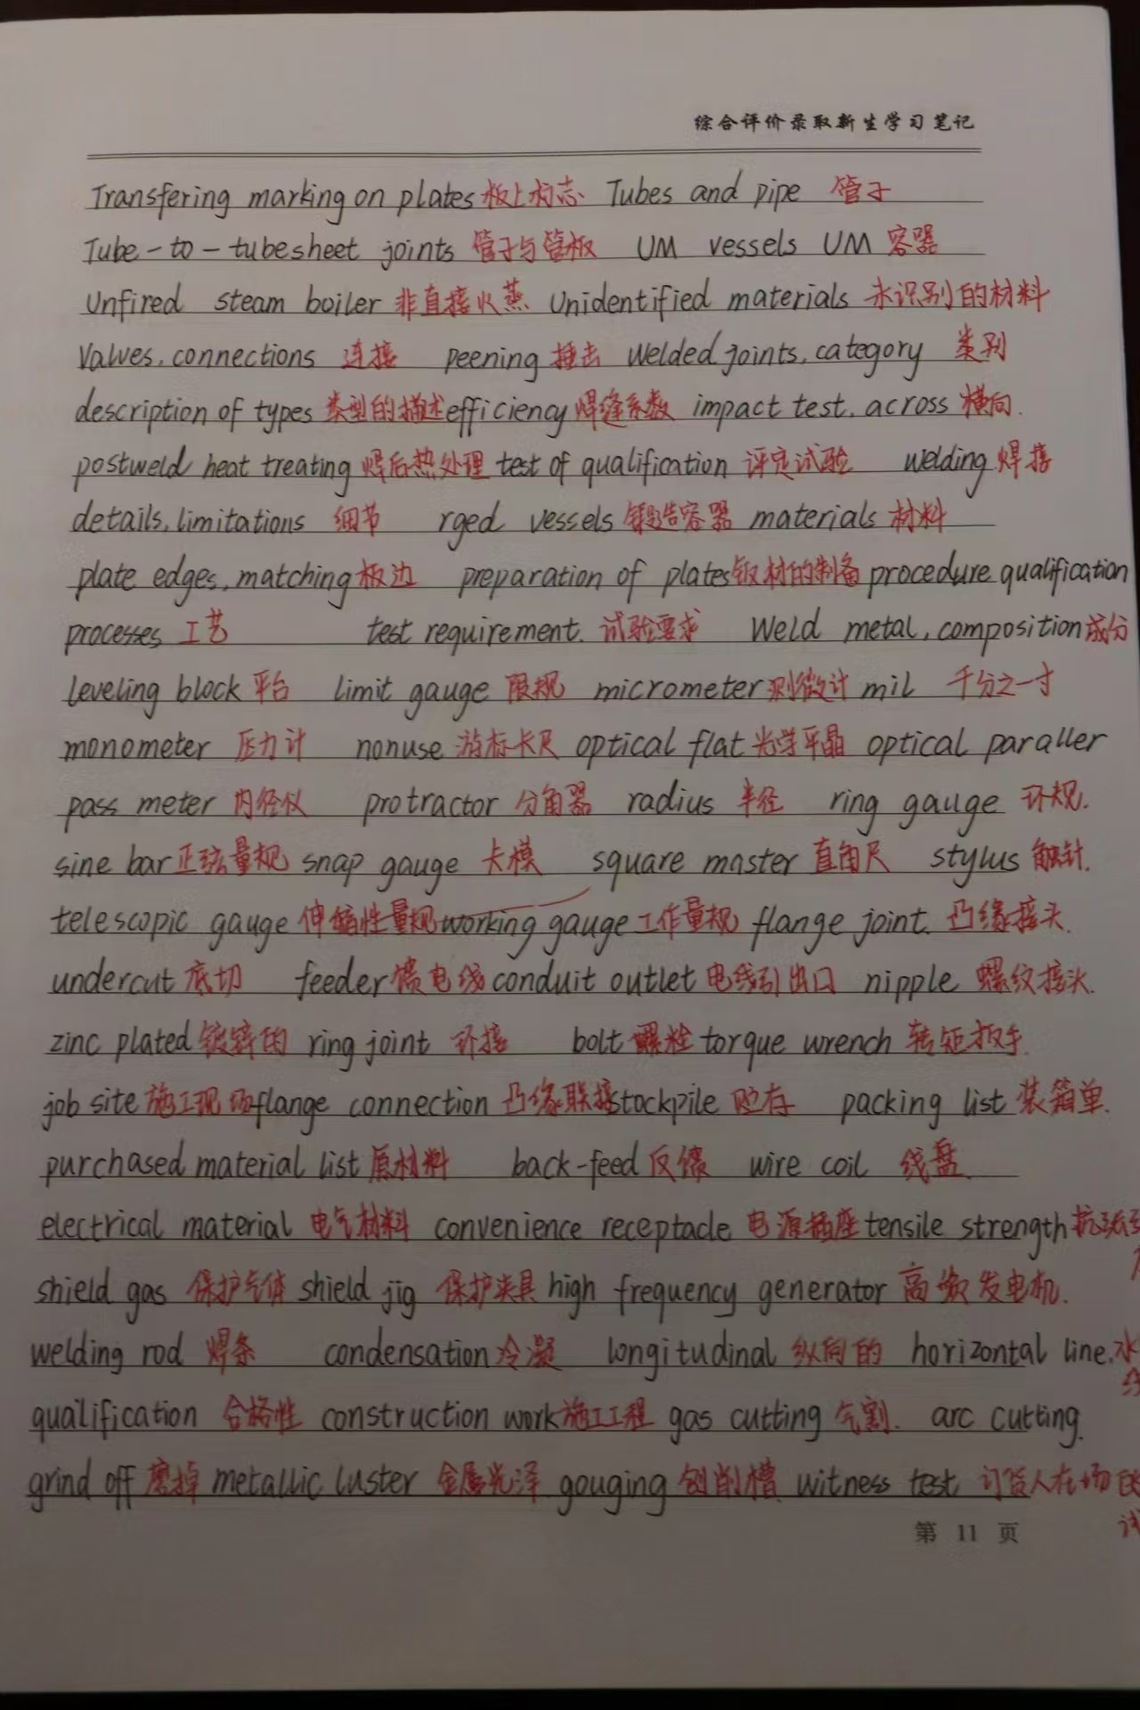 综合评价录取新生学习笔记
Transfering marking on plates 板上标志 Tubes and pipe 管子
Tube-to-tubesheet joints 管子与管板 UM vessels UM 容器
Unfired steam boiler 非直接火蒸 Unidentified materials 未识别的材料
Valves, connections 连接 peening 捶击 Welded joints, category 类别
description of types 类型的描述 efficiency 焊缝系数 impact test, across 横向.
postweld heat treating 焊后热处理 test of qualification 评定试验 welding 焊接
details, limitations 细节 rged vessels 锻造容器 materials 材料
plate edges, matching 板边 preparation of plates 钣材的制备 procedure qualification
processes 工艺 test requirement. 试验要求 Weld metal, composition 成分
leveling block 平台 limit gauge 限规 micrometer 测微计 mil 千分之一寸
monometer 压力计 nonuse 游标卡尺 optical flat 光学平晶 optical paraller
pass meter 内径仪 protractor 分角器 radius 半径 ring gauge 环规.
sine bar 正弦量规 snap gauge 卡模 square master 直角尺 stylus 触针.
telescopic gauge 伸缩性量规 working gauge 工作量规 flange joint. 凸缘接头.
undercut 底切 feeder 馈电线 conduit outlet 电线引出口 nipple 螺纹接头.
zinc plated 镀锌的 ring joint 环接 bolt 螺栓 torque wrench 转矩扳手
job site 施工现场 flange connection 凸缘联接 stockpile 贮存 packing list 装箱单.
purchased material list 原材料 back-feed 反馈 wire coil 线盘
electrical material 电气材料 convenience receptacle 电源插座 tensile strength 抗张强
shield gas 保护气体 shield jig 保护夹具 high frequency generator 高频发电机.
welding rod 焊条 condensation 冷凝 longitudinal 纵向的 horizontal line. 水
qualification 合格性 construction work 施工工程 gas cutting 气割. arc cutting.
grind off 磨掉 metallic luster 金属光泽 gouging 刨削槽 witness test 订货人在场的
试
第 11 页